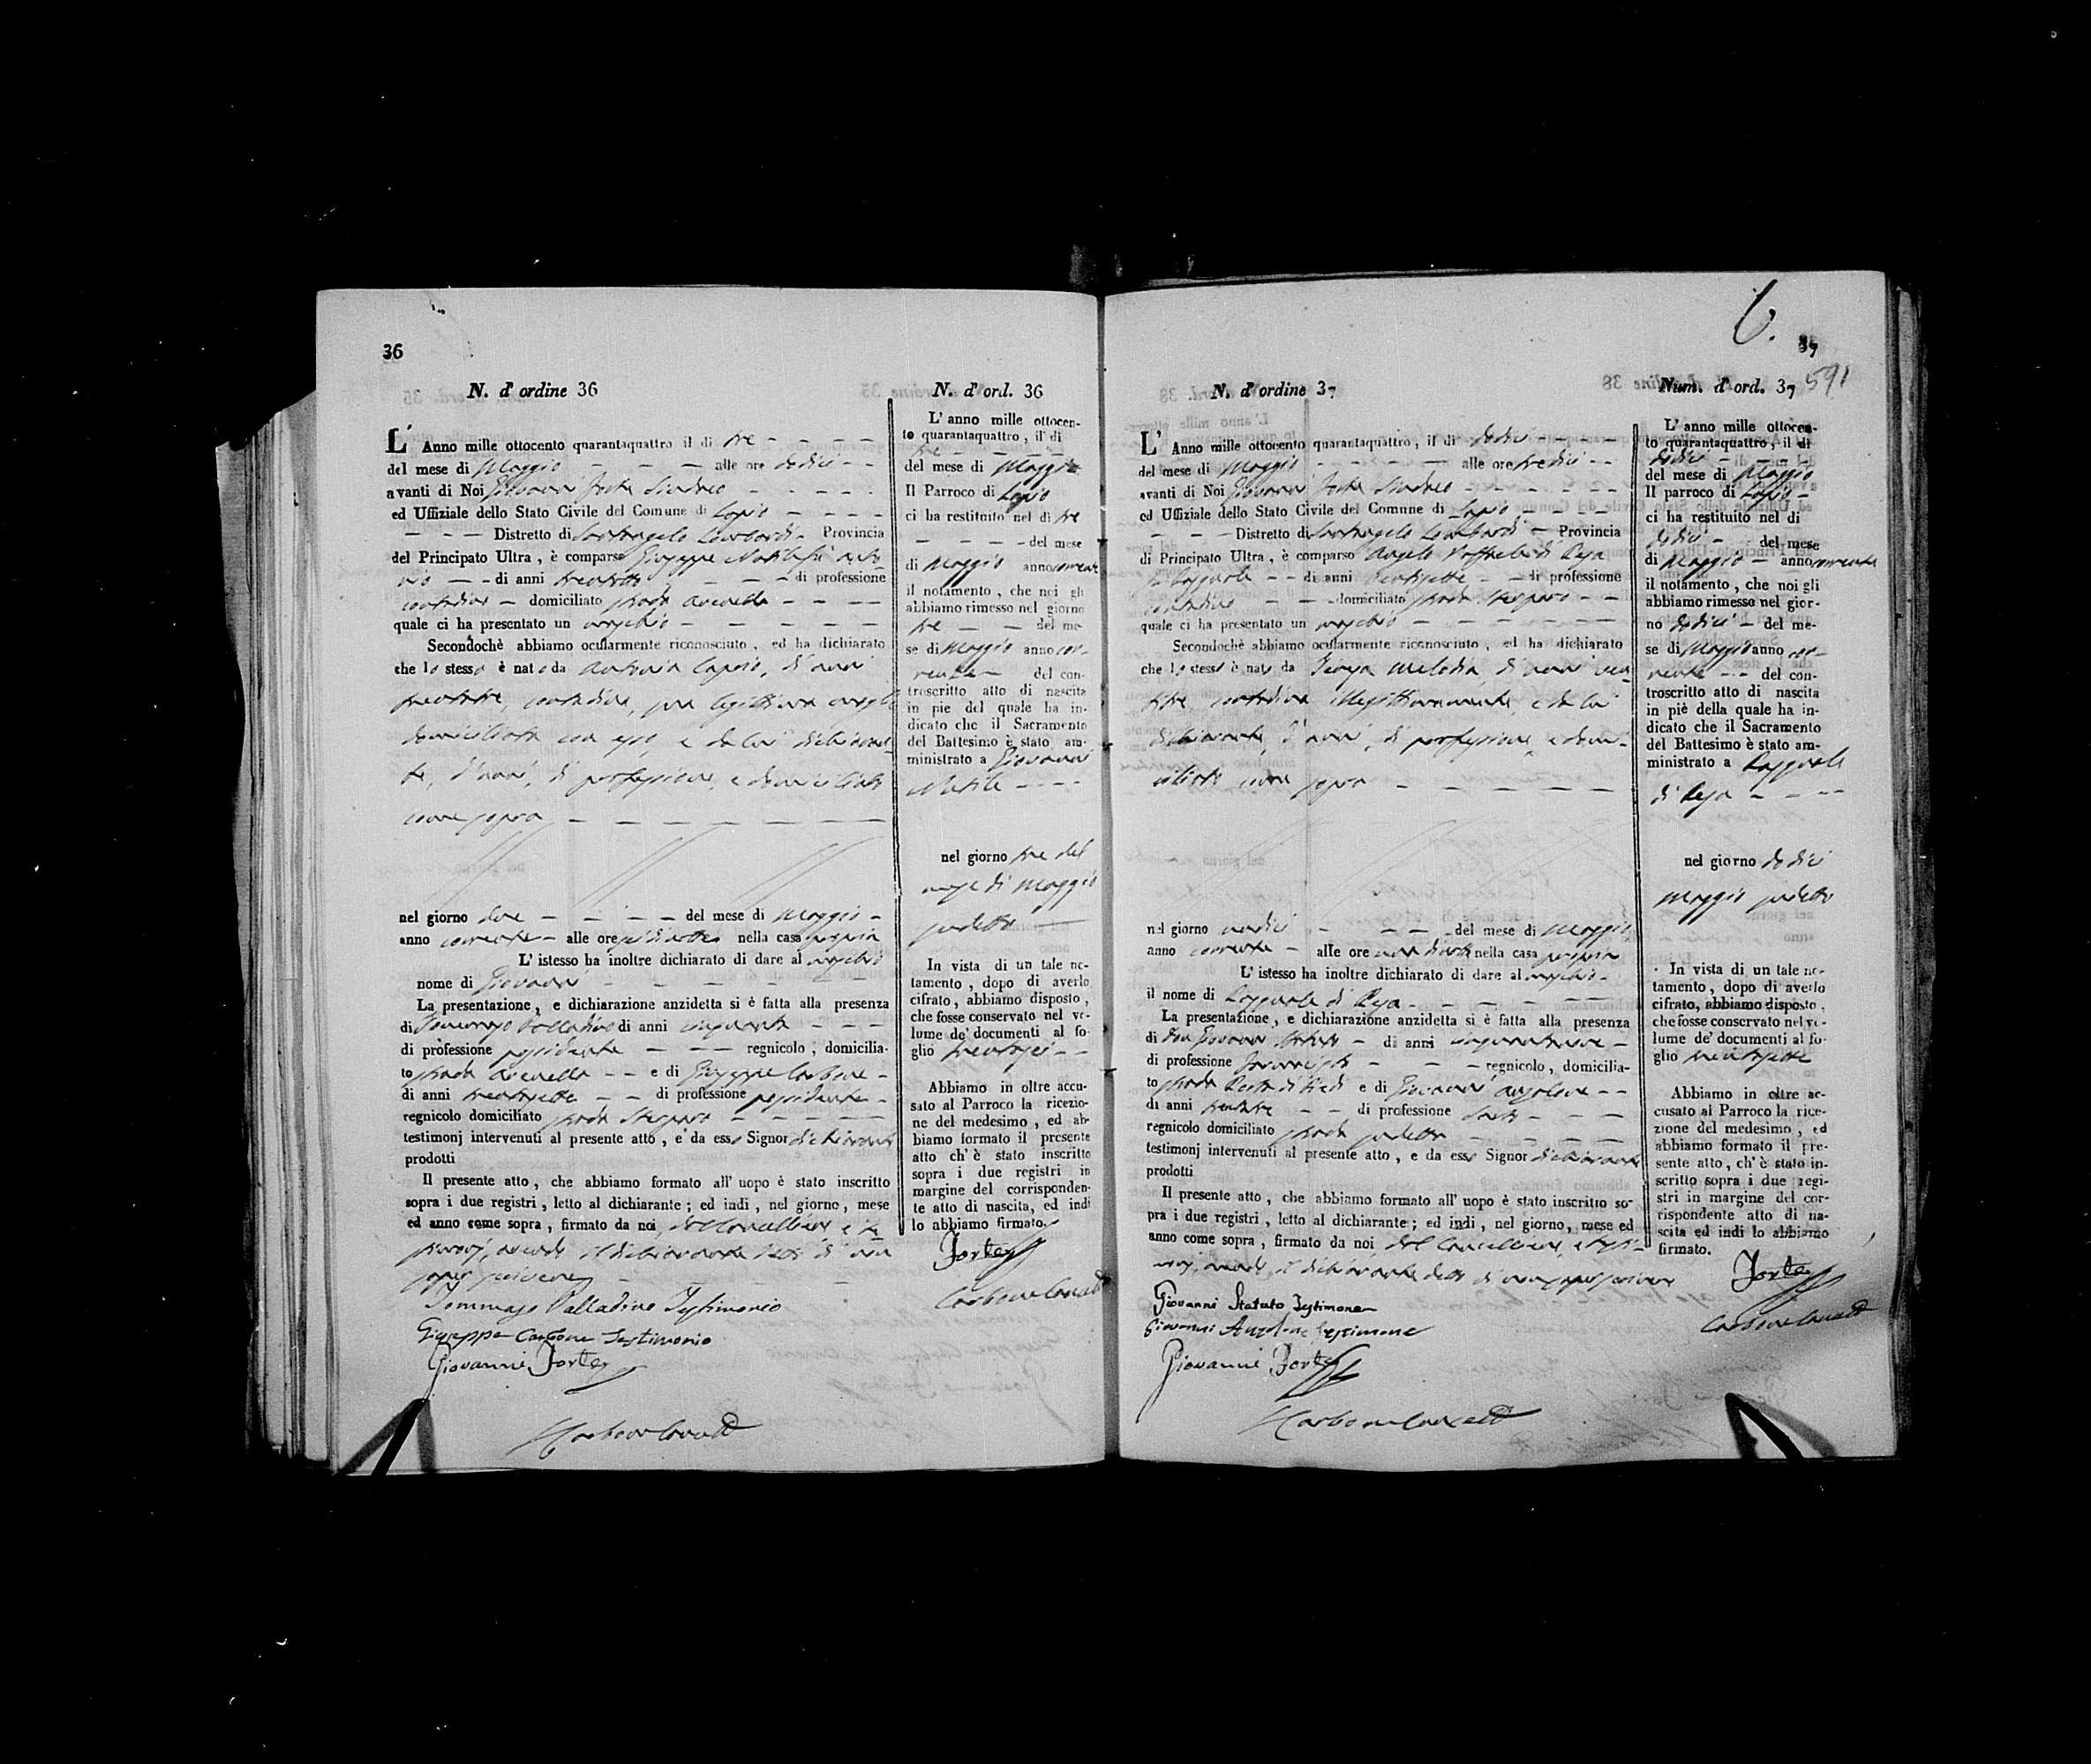 36
N. d' ordine 36
L' Anno mille ottocento quarantaquattro il di tre
del mese di Maggio alle ore dodici
avanti di Noi Giovanni Forte Sindaco
ed Uffiziale dello Stato Civile del Comune di Lapio
Distretto di Santangelo Lombardi Provincia
del Principato Ultra, è comparso Giuseppe Natile fu Anto-
nio di anni trentotto di professione
contadino domiciliato strada
quale ci ha presentato un maschio
Secondochè abbiamo ocularmente riconosciuto, ed ha dichiarato
che lo stesso è nato da Antonia Caprio, d'anni
trentatre, contadina, sua legittima moglie
domiciliata con esso e da lui dichiaran-
te, d'anni, di professione, e domiciliato
come sopra
nel giorno due del mese di Maggio
anno corrente alle ore nella casa propria
L' istesso ha inoltre dichiarato di dare al maschio
nome di Giovanni
La presentazione, e dichiarazione anzidetta si è fatta alla presenza
di Tommaso Palladino di anni cinquanta
di professione possidente regnicolo, domicilia-
to strada e di Giuseppe Carbone
di anni trentasette di professione possidente
regnicolo domiciliato strada
testimonj intervenuti al presente atto, e da esso Signor dichiarante
prodotti
Il presente atto, che abbiamo formato all' uopo è stato inscritto
sopra i due registri, letto al dichiarante; ed indi, nel giorno, mese
ed anno come sopra, firmato da noi, dal Cancelliere e te-
stimonj, avendo il dichiarante detto di non
saper scrivere
Tommaso Palladino Testimonio
Giuseppe Carbone Testimonio
Giovanni Forte
Carbone
N. d' ord. 36
L' anno mille ottocen-
to quarantaquattro, il di
tre
del mese di Maggio
Il Parroco di Lapio
ci ha restituito nel di tre
del mese
di Maggio anno corrente
il notamento, che noi gli
abbiamo rimesso nel giorno
tre del me-
se di Maggio anno cor-
rente del con-
troscritto atto di nascita
in pie del quale ha in-
dicato che il Sacramento
del Battesimo è stato am-
ministrato a Giovanni
Natile
nel giorno tre del
mese di Maggio
sudetto
In vista di un tale no-
tamento, dopo di averlo
cifrato, abbiamo disposto,
che fosse conservato nel vo-
lume de' documenti al fo-
glio trentasei
Abbiamo in oltre accu-
sato al Parroco la ricezio-
ne del medesimo, ed ab-
biamo formato il presente
atto ch' è stato inscritto
sopra i due registri in
margine del corrisponden-
te atto di nascita, ed indi
lo abbiamo firmato.
Forte
Carbone
6.
37
591
N. d' ordine 37
L' Anno mille ottocento quarantaquattro, il di dodici
del mese di Maggio alle ore tredici
avanti di Noi Giovanni Forte Sindaco
ed Uffiziale dello Stato Civile del Comune di Lapio
Distretto di Santangelo Lombardi Provincia
di Principato Ultra, è comparso Angelo Raffaele di Resa
di Pasquale di anni ventisette di professione
contadino domiciliato strada
quale ci ha presentato un maschio
Secondochè abbiamo ocularmente riconosciuto, ed ha dichiarato
che lo stesso è nato da Teresa Meledia, di anni ven-
titre, contadina illegittimamente, e da lui
dichiarante, d'anni, di professione, e domi-
ciliato come sopra
nel giorno undici del mese di Maggio
anno corrente alle ore nella casa propria
L' istesso ha inoltre dichiarato di dare al maschio
il nome di Pasquale di Resa
La presentazione, e dichiarazione anzidetta si è fatta alla presenza
di Don Giovanni Statuto di anni
di professione Farmacista regnicolo, domicilia-
to strada e di Giovanni Anzalone
di anni trentatre di professione Sarto
regnicolo domiciliato strada sudetta
testimonj intervenuti al presente atto, e da esso Signor dichiarante
prodotti
Il presente atto, che abbiamo formato all' uopo è stato inscritto so-
pra i due registri, letto al dichiarante; ed indi, nel giorno, mese ed
anno come sopra, firmato da noi dal Cancelliere, e testi-
monj, avendo il dichiarante detto di non saper scrivere
Giovanni Statuto Testimone
Giovanni Anzalone Testimone
Giovanni Forte
Carbone
Num. d' ord. 37
L' anno mille ottocen-
to quarantaquattro, il di
dodici
del mese di Maggio
Il parroco di Lapio
ci ha restituito nel di
dodici del mese
di Maggio anno corrente
il notamento, che noi gli
abbiamo rimesso nel gior-
no dodici del me-
se di Maggio anno cor-
rente del con-
troscritto atto di nascita
in piè della quale ha in-
dicato che il Sacramento
del Battesimo è stato am-
ministrato a Pasquale
di Resa
nel giorno dodici
Maggio sudetto
In vista di un tale no-
tamento, dopo di averlo
cifrato, abbiamo disposto,
che fosse conservato nel vo-
lume de' documenti al fo-
glio trentasette
Abbiamo in oltre ac-
cusato al Parroco la rice-
zione del medesimo, ed
abbiamo formato il pre-
sente atto, ch' è stato in-
scritto sopra i due regi-
stri in margine del cor-
rispondente atto di na-
scita ed indi lo abbiamo
firmato.
Forte
Carbone